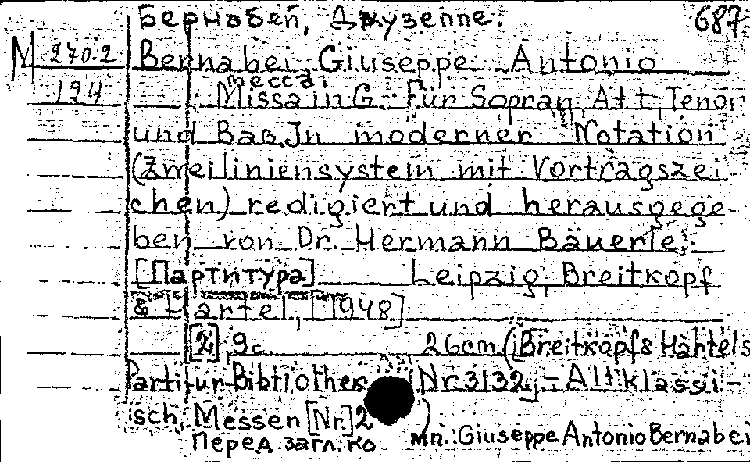 Бернабеи, Джузеппе. 687
М 270.2 Bernabei Giuseppe Antonio
194 месса.
Missa in G. Für Sopran, Alt, Tenor
und Bas. In moderner Notation
(Zweiliniensystem mit Vortragszei-
chen) redigiert und herausgege-
ben von Dr. Hermann Bäuerle.
[Партитура] Leipzig, Breitkopf
& Härtel, [1948]
[2], 9 с. 26cm. (Breitkopf & Härtels
Partitur-Bibliothek [Nr 3132] – Altklassi-
sch. Messen [Nr.] 2 )
Перед загл. ко мп.: Giuseppe Antonio Bernabei